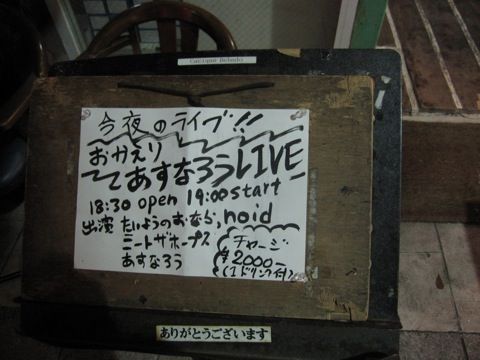 今夜のライブ!!
おかえり
〜あすなろうLIVE
18:30 open 19:00 start
出演 たいようのおなら, noid
ミートザホープス
あすなろう
チャージ
¥2000-
(1ドリンク付)
ありがとうございます